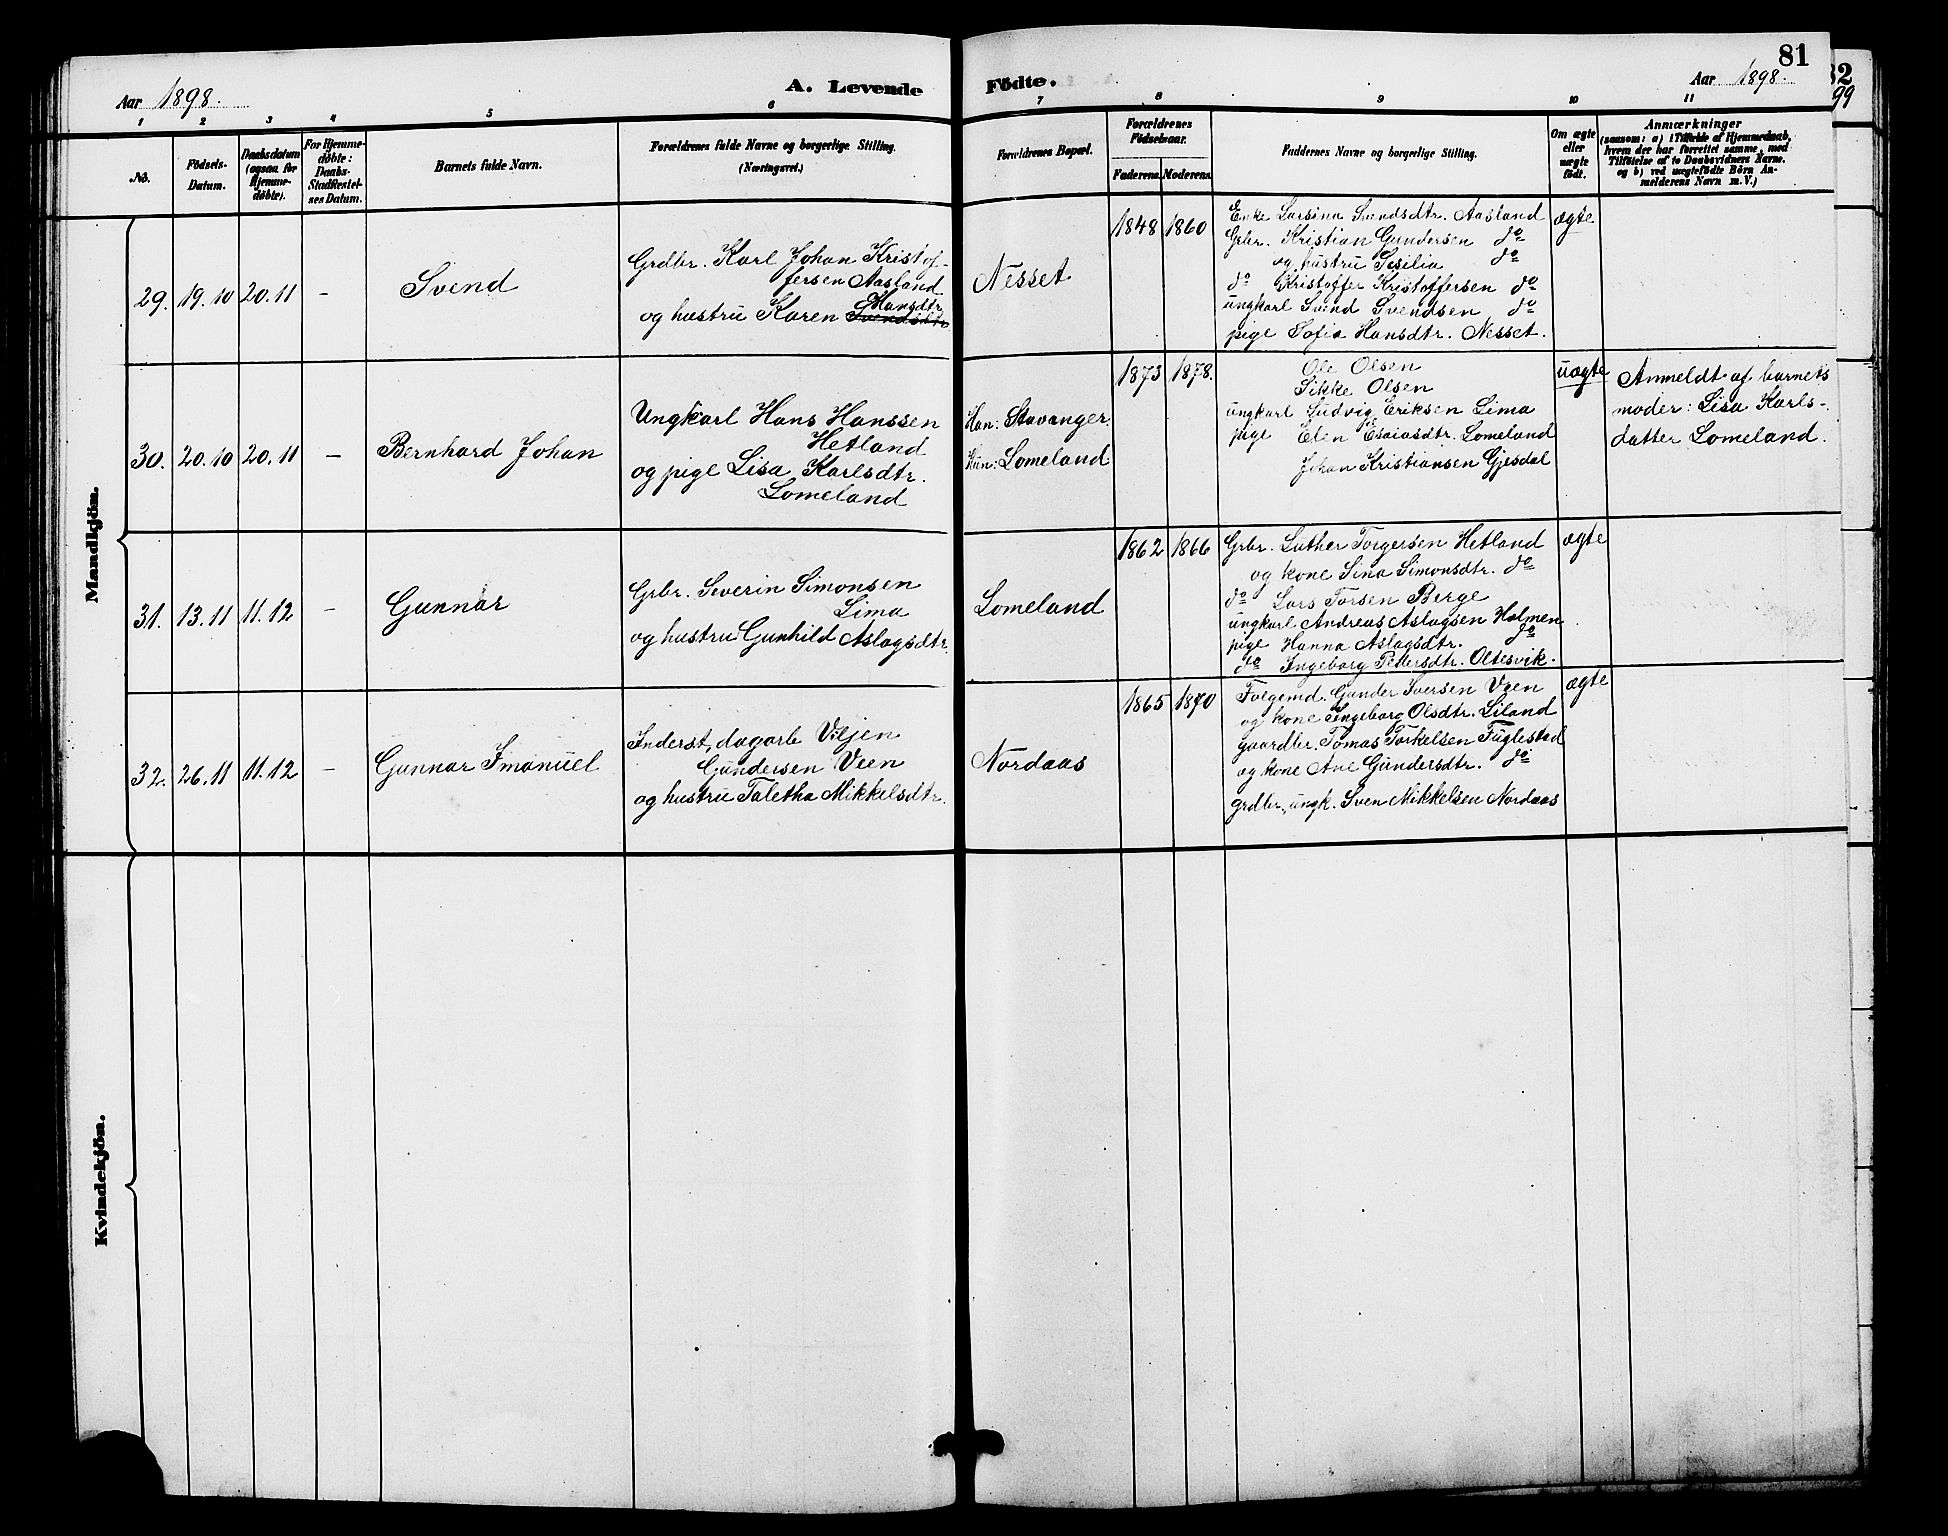 81
82
99
Aar 1898.
A. Levende Födte.
Aar 1898.
1 2 3 4 5 6 7 8 9 10 11
No.
Födsels-
Datum.
Daabsdatum
(ogsaa for
Hjemme-
döbte).
For Hjemme-
döbte:
Daabs-
Stadfæstel-
ses Datum.
Barnets fulde Navn.
Forældrenes fulde Navne og borgerlige Stilling.
(Næringsvei.)
Forældrenes Bopæl.
Forældrenes
Födselsaar.
Faderens. Moderens.
Faddernes Navne og borgerlige Stilling.
Om ægte
eller
uægte
født.
Anmærkninger
(saasom: a) i Tilfælde af Hjemmedaab,
hvem der har forrettet samme, med
Tilföielse af to Daabsvidners Navne.
og b) ved uægtefödte Börn An-
melderens Navn m.V.)
Mandkjön.
29. 19.10 20.11 –
Svend
Grdbr. Karl Johan Kristof-
fersen Aasland
Hansdtr.
og hustru Karen Svendsdtr
Nesset
1848 1860
Enke Larsina Svendsdtr. Aasland
Grbr. Kristian Gundersen do
og hustru Sesilia do
do Kristoffer Kristoffersen do
ungkarl Svend Svendsen do
pige Sofia Hansdtr. Nesset.
ægte
30. 20.10 20.11 –
Bernhard Johan
Ungkarl Hans Hanssen
Hetland
og pige Lisa Karlsdtr.
Lomeland
Han: Stavanger.
Hun: Lomeland
1873 1878.
Ole Olsen
Sikke Olsen
ungkarl Ludvig Eriksen Lima
pige Elen Esaiasdtr. Lomeland
Johan Kristiansen Gjesdal
uægte
Anmeldt af barnets
moder: Lisa Karls-
datter Lomeland.
31. 13.11 11.12 –
Gunnar
Grbr. Severin Simonsen
Lima
og hustru Gunhild Aslagsdtr.
Lomeland
1862 1866
Grbr. Luther Torgersen Hetland
og kone Sina Simonsdtr. do
do Lars Torsen Berge
ungkarl Andreas Aslagsen Holmen
pige Hanna Aslagsdtr. do
do Ingeborg Pedersdtr. Oltesvik.
ægte
32. 26.11 11.12 –
Gunnar Imanuel
Inderst, dagarb Viljen
Gundersen Veen
og hustru Taletha Mikkelsdtr.
Nordaas
1865 1870
Folgemd. Gunder Iversen Veen
og kone Ingeborg Olsdtr. Liland
gaardbr. Tomas Torkelsen Fuglestad
og kone Ane Gundersdtr. do
grdbr., ungk. Sven Mikkelsen Nordaas
ægte
Kvindekjön.